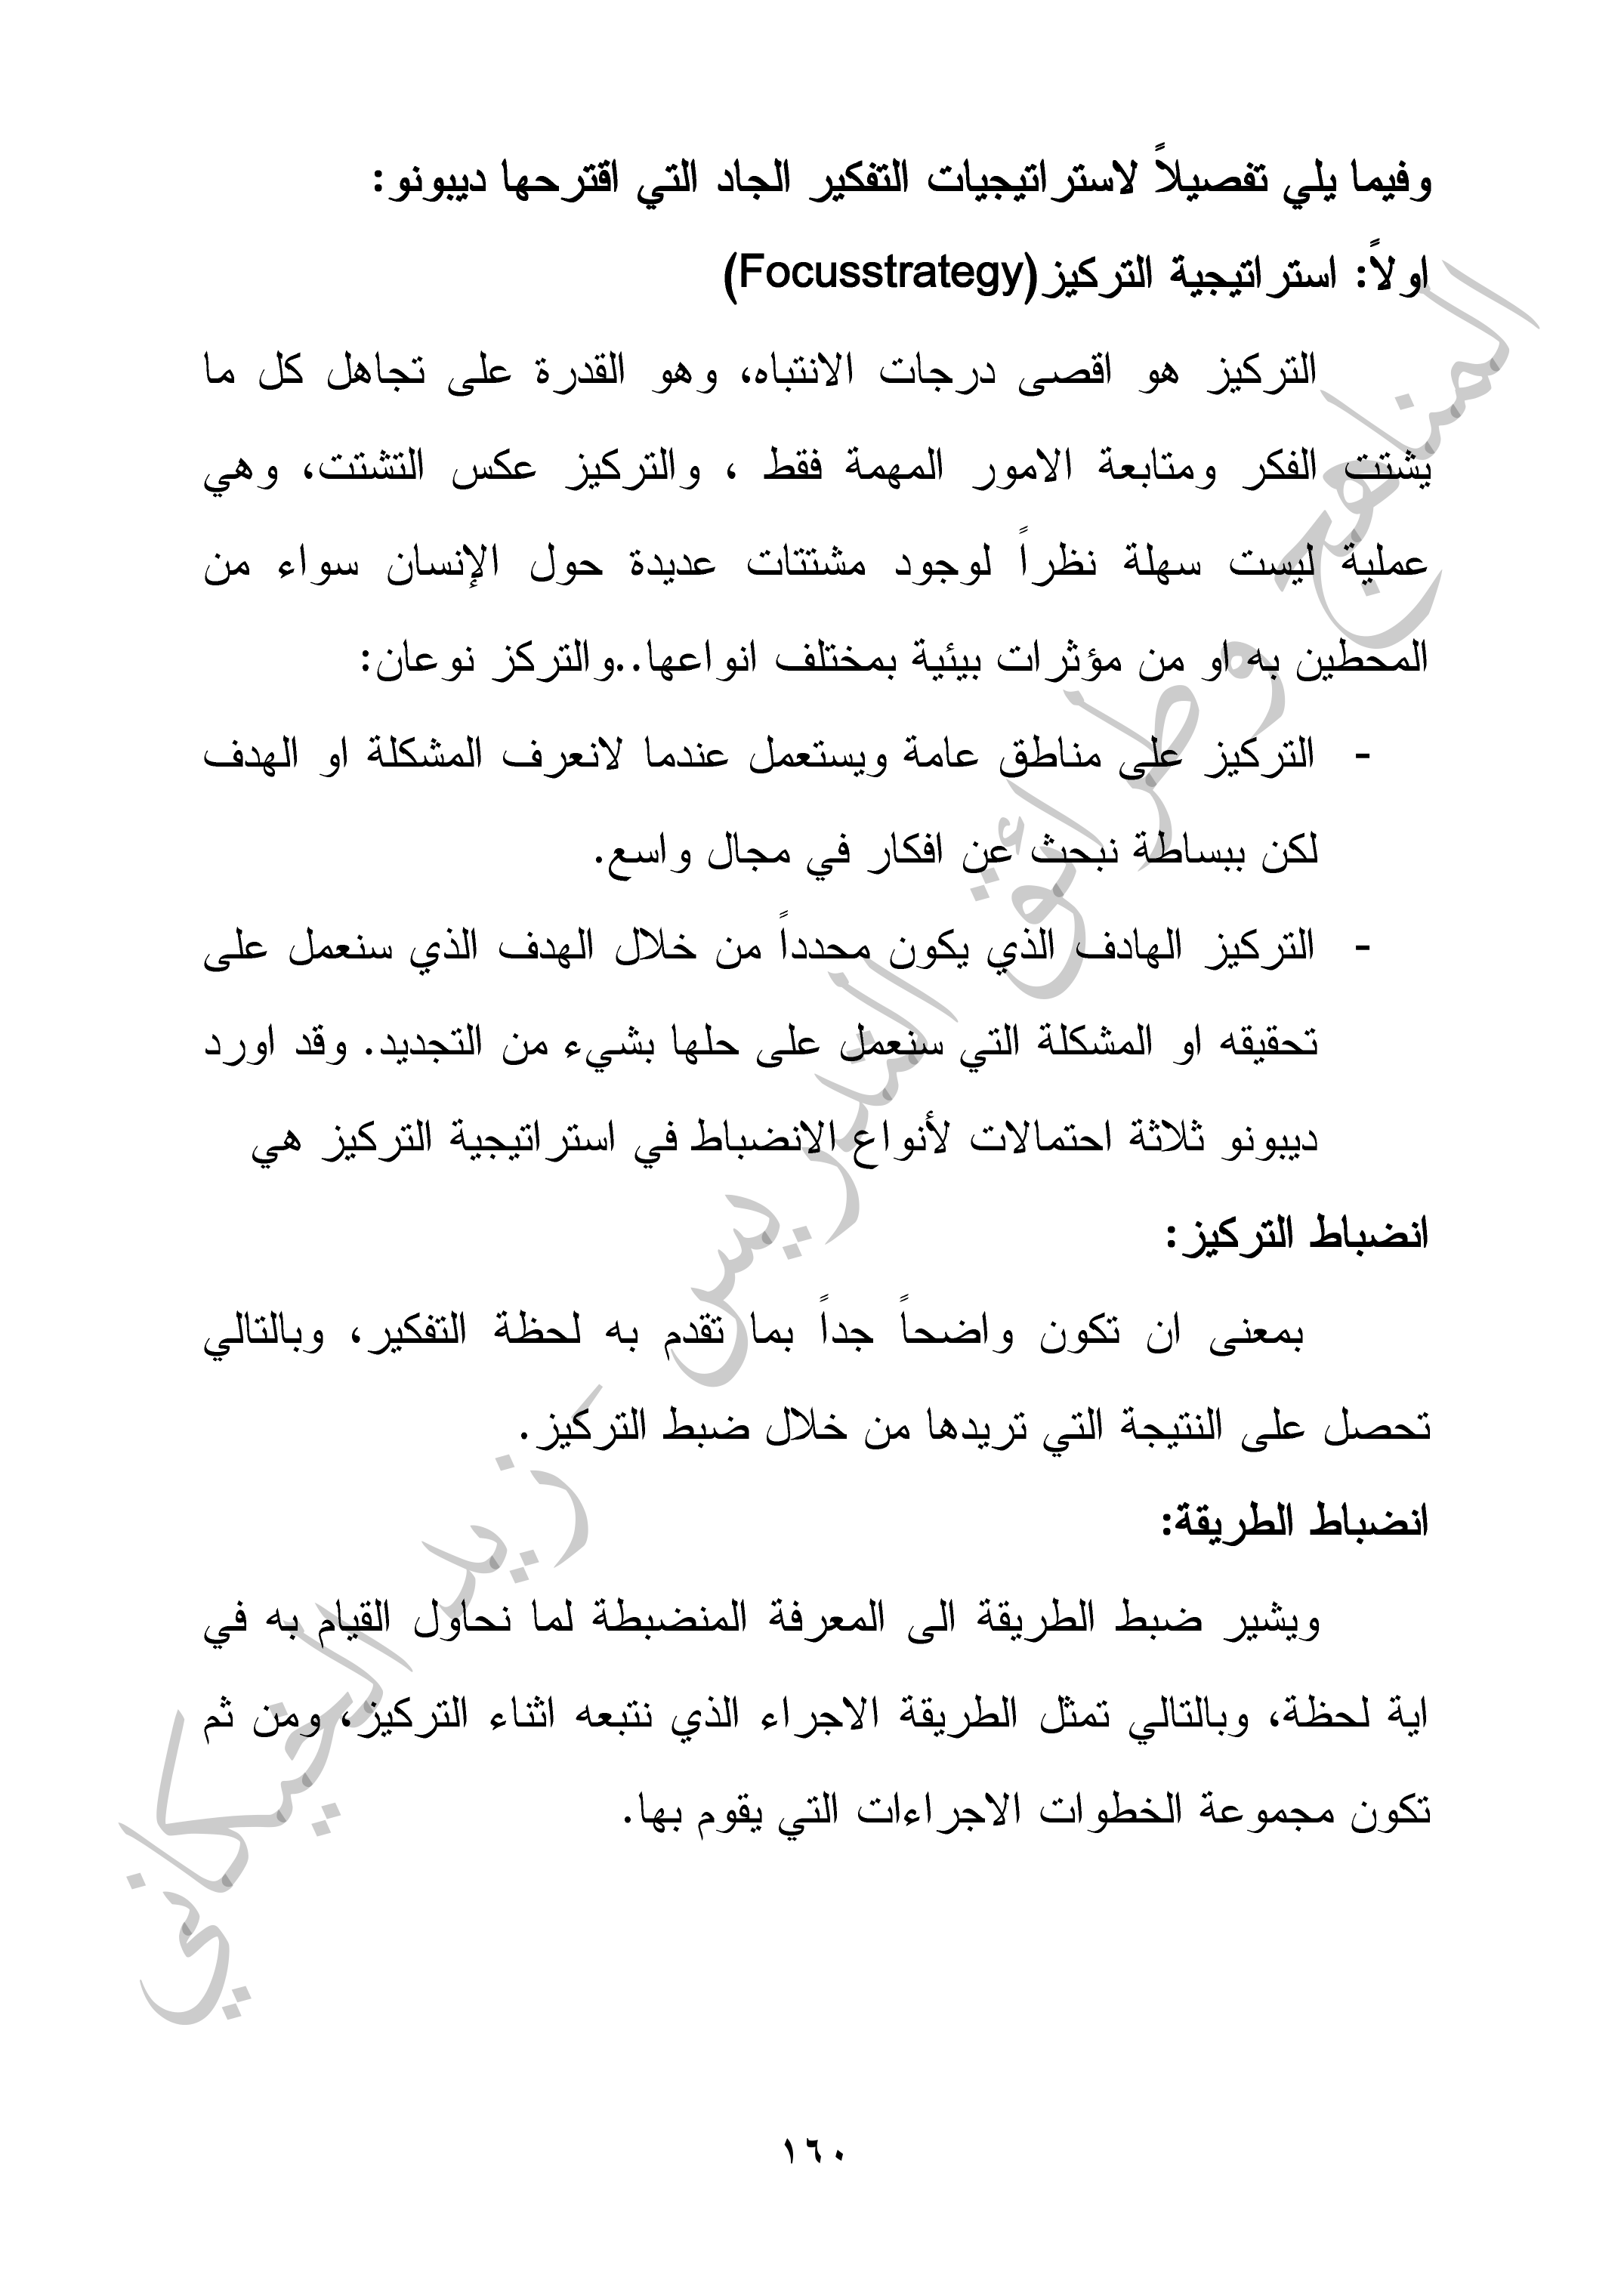 وفيما يلي تفصيلاً لاستراتيجيات التفكير الجاد التي اقترحها ديبونو:
اولاً: استراتيجية التركيز(Focusstrategy)
التركيز هو اقصى درجات الانتباه، وهو القدرة على تجاهل كل ما
يشتت الفكر ومتابعة الامور المهمة فقط ، والتركيز عكس التشتت، وهي
عملية ليست سهلة نظراً لوجود مشتتات عديدة حول الإنسان سواء من
المحطين به او من مؤثرات بيئية بمختلف انواعها..والتركز نوعان:
- التركيز على مناطق عامة ويستعمل عندما لانعرف المشكلة او الهدف
لكن ببساطة نبحث عن افكار في مجال واسع.
- التركيز الهادف الذي يكون محدداً من خلال الهدف الذي سنعمل على
تحقيقه او المشكلة التي سنعمل على حلها بشيء من التجديد. وقد اورد
ديبونو ثلاثة احتمالات لأنواع الانضباط في استراتيجية التركيز هي
انضباط التركيز:
بمعنى ان تكون واضحاً جداً بما تقدم به لحظة التفكير، وبالتالي
تحصل على النتيجة التي تريدها من خلال ضبط التركيز.
انضباط الطريقة:
ويشير ضبط الطريقة الى المعرفة المنضبطة لما نحاول القيام به في
اية لحظة، وبالتالي تمثل الطريقة الاجراء الذي نتبعه اثناء التركيز، ومن ثم
تكون مجموعة الخطوات الاجراءات التي يقوم بها.
المناهج وطرائق التدريس زيد الخيكاني
١٦٠